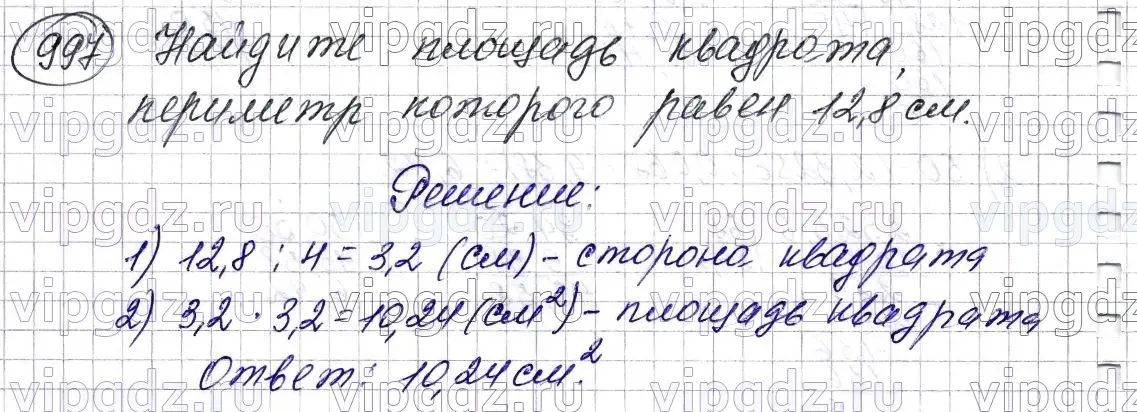 997 Найдите площадь квадрата,
периметр которого равен 12,8 см.
Решение:
1) 12,8 : 4 = 3,2 (см) - сторона квадрата
2) 3,2 · 3,2 = 10,24 (см²) - площадь квадрата
Ответ: 10,24 см².
vipgdz.ru